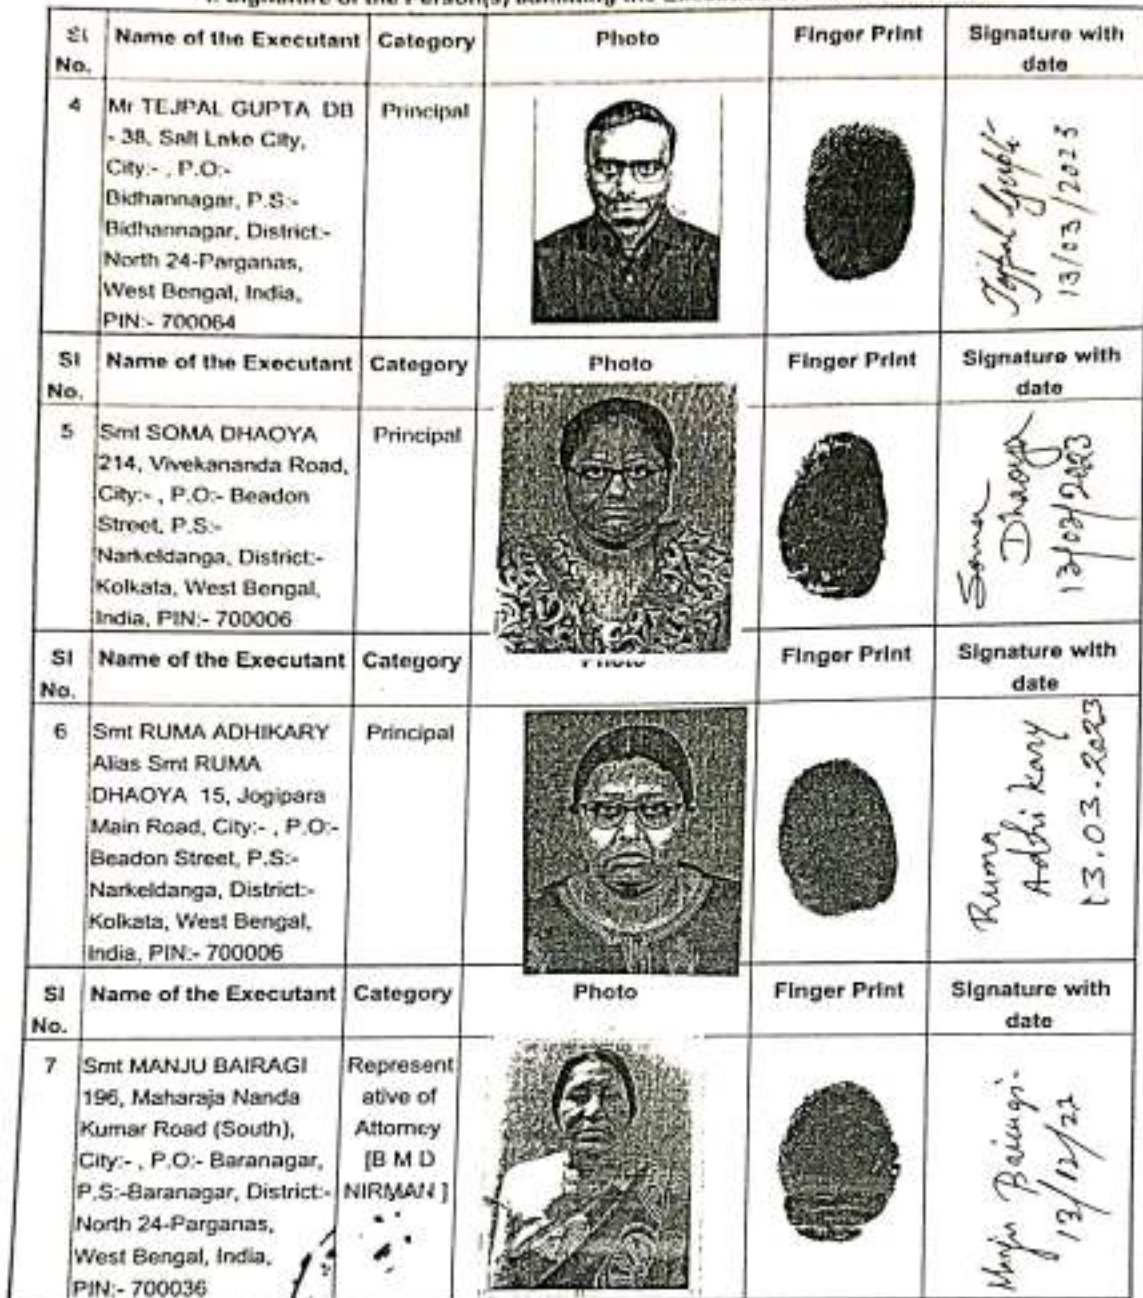 Signature of the Person(s) admitting the Execution
Sl No. Name of the Executant Category Photo Finger Print Signature with date
4 Mr TEJPAL GUPTA DB Principal
- 38, Salt Lake City,
City:- , P.O:-
Bidhannagar, P.S:-
Bidhannagar, District:-
North 24-Parganas,
West Bengal, India,
PIN:- 700064
Tejpal Gupta
13/03/2023
Sl No. Name of the Executant Category Photo Finger Print Signature with date
5 Smt SOMA DHAOYA Principal
214, Vivekananda Road,
City:- , P.O:- Beadon
Street, P.S:-
Narkeldanga, District:-
Kolkata, West Bengal,
India, PIN:- 700006
Soma
Dhaoya
13/03/2023
Sl No. Name of the Executant Category Photo Finger Print Signature with date
6 Smt RUMA ADHIKARY Principal
Alias Smt RUMA
DHAOYA 15, Jogipara
Main Road, City:- , P.O:-
Beadon Street, P.S:-
Narkeldanga, District:-
Kolkata, West Bengal,
India, PIN:- 700006
Ruma
Adhikary
13.03.2023
Sl No. Name of the Executant Category Photo Finger Print Signature with date
7 Smt MANJU BAIRAGI
196, Maharaja Nanda
Kumar Road (South),
City:- , P.O:- Baranagar,
P.S:-Baranagar, District:-
North 24-Parganas,
West Bengal, India,
PIN:- 700036
Represent
ative of
Attorney
[B M D
NIRMAN ]
Manju Bairagi